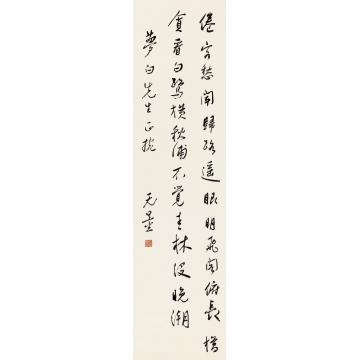 倦客愁聞歸路遥眼明飛閣俯長橋
貪看白鷺橫秋浦不覺青林没晚潮
夢白先生正捥
天墨